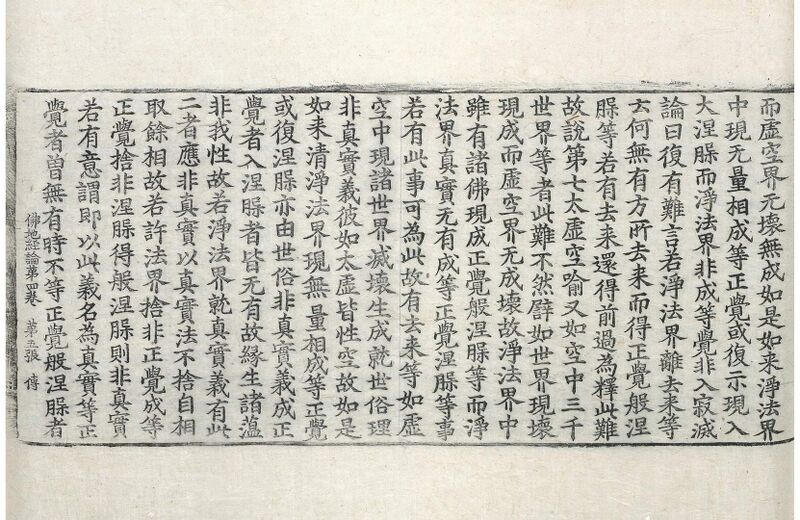 而虛空界无壞無成如是如来淨法界
中現无量相成等正覺或復示現入
大涅槃而淨法界非成等覺非入寂滅
論曰復有難言若淨法界離去来等
云何無有方所去来而得正覺般涅
槃等若有去来還得前過為釋此難
故說第七太虛空喻又如空中三千
世界等者此難不然譬如世界現壞
現成而虛空界无成壞故淨法界中
雖有諸佛現成正覺般涅槃等而淨
法界真實无有成等正覺涅槃等事
若有此事可為此故有去来等如虛
空中現諸世界滅壞生成就世俗理
非真實義彼如太虛皆性空故如是
如来清淨法界現無量相成等正覺
或復涅槃亦由世俗非真實義成正
覺者入涅槃者皆无有故緣生諸蘊
非我性故若淨法界就真實義有此
二者應非真實以真實法不捨自相
取餘相故若許法界捨非正覺成等
正覺捨非涅槃得般涅槃則非真實
若有意謂即以此義名為真實等正
覺者曾無有時不等正覺般涅槃者
佛地經論第四卷 第五張 傳